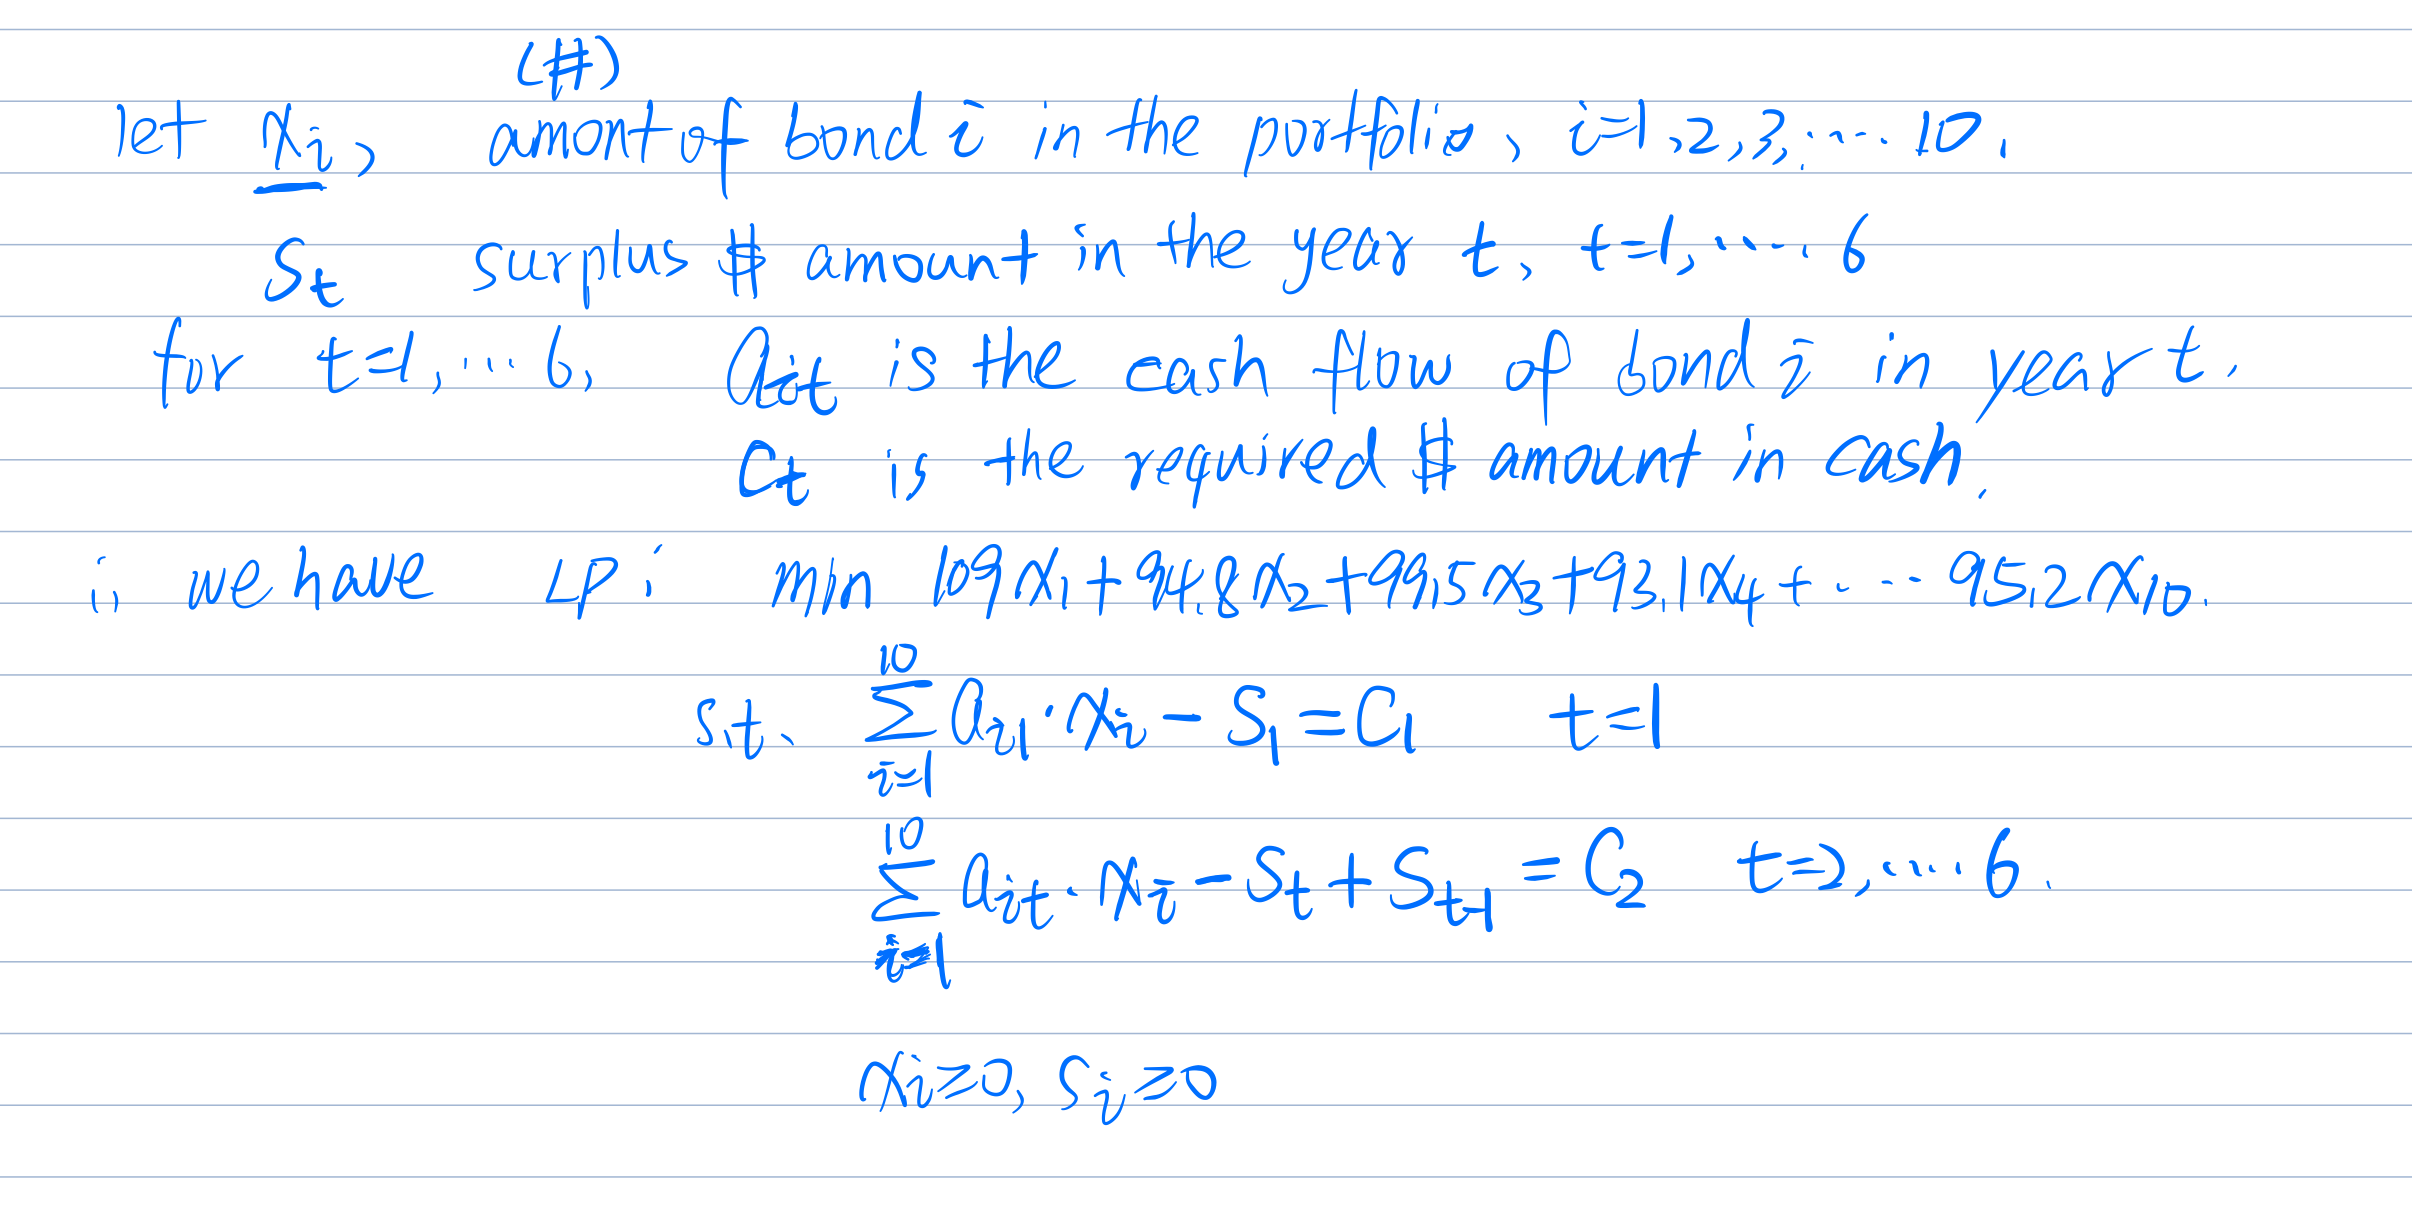 (#)
let xi, amont of bond i in the portfolio, i=1,2,3,.... 10.
St surplus $ amount in the year t, t=1,.... 6
for t=1,... 6, ait is the cash flow of bond i in year t.
Ct is the required $ amount in cash.
i, we have LP: min 109x1+94.8x2+99.5x3+93.1x4+....95.2x10.
s.t. 10∑i=1 ai1·xi-S1=C1 t=1
10∑i=1 ait·xi-St+St-1=C2 t=2,....6.
xi≥0, Si≥0